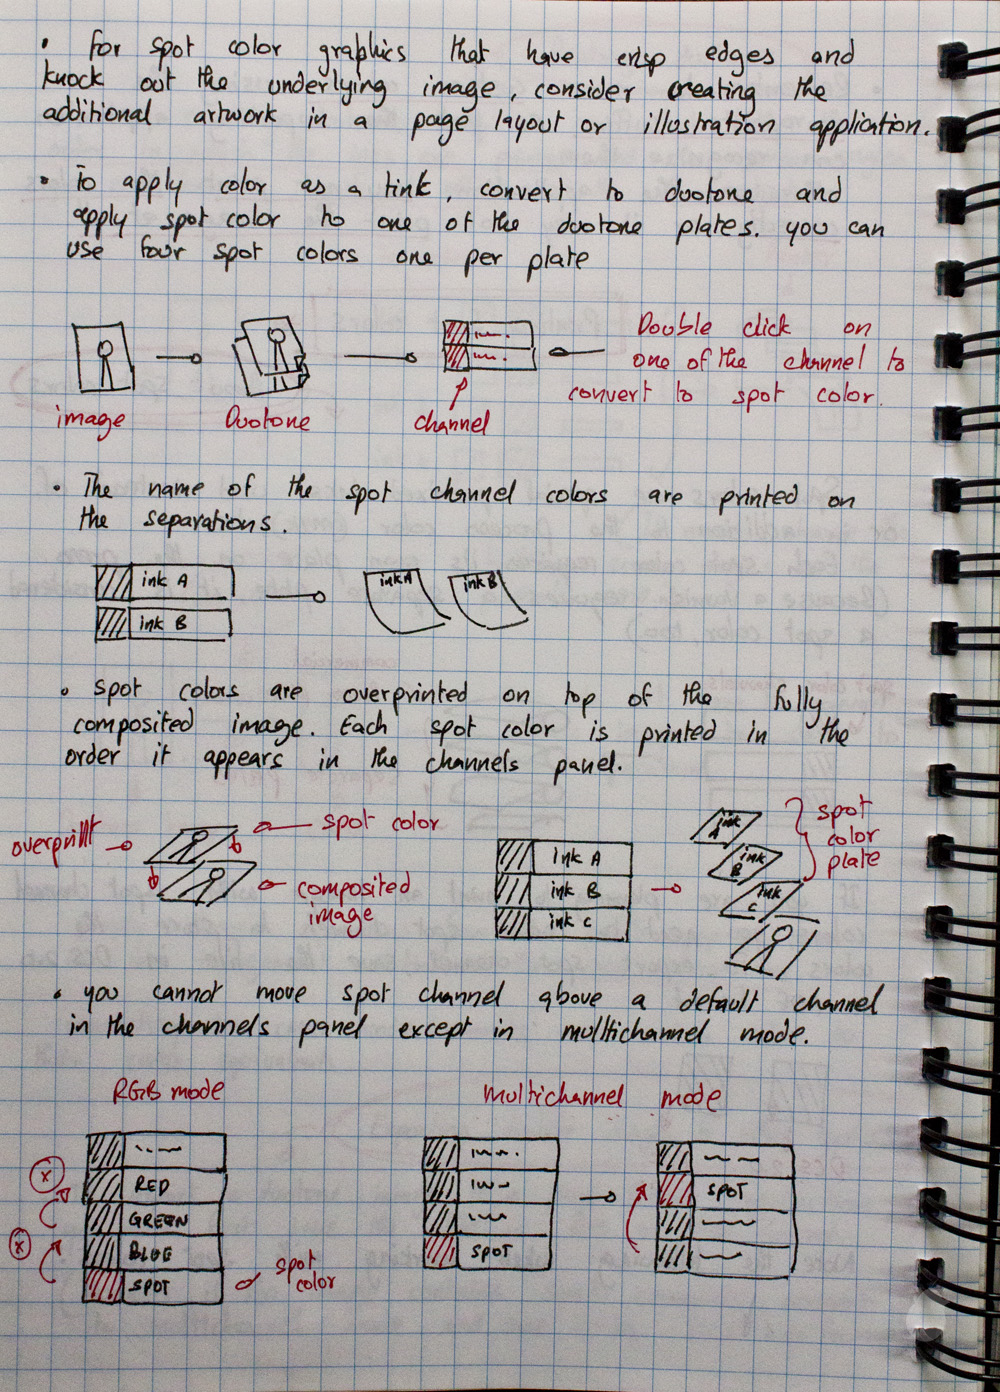 • for spot color graphics that have crisp edges and
knock out the underlying image, consider creating the
additional artwork in a page layout or illustration application.
• To apply color as a tint, convert to duotone and
apply spot color to one of the duotone plates. you can
use four spot colors one per plate
Double click on
one of the channel to
convert to spot color.
image
Duotone
channel
• The name of the spot channel colors are printed on
the separations.
ink A
ink B
ink A
ink B
• spot colors are overprinted on top of the fully
composited image. Each spot color is printed in the
order it appears in the channels panel.
overprint
spot color
composited
image
ink A
ink B
ink C
ink A
ink B
ink C
spot
color
plate
• you cannot move spot channel above a default channel
in the channels panel except in multichannel mode.
RGB mode
RED
GREEN
BLUE
SPOT
spot
color
Multichannel mode
SPOT
SPOT